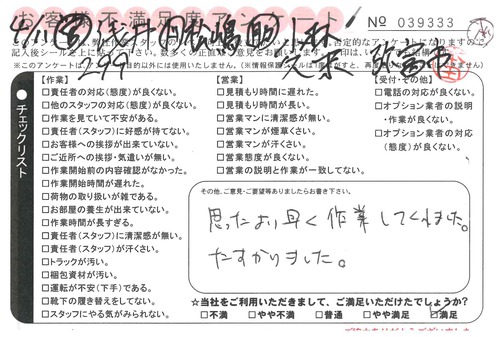 Nº 039333
※このアンケートは
【作業】
□責任者の対応(態度)が良くない。
□他のスタッフの対応(態度)が良くない。
□作業を見ていて不安がある。
□責任者(スタッフ)に好感が持てない。
□お客様への挨拶が出来ていない。
□ご近所への挨拶・気遣いが無い。
□作業開始前の内容確認がなかった。
□作業開始時間が遅れた。
□荷物の取り扱いが雑である。
□お部屋の養生が出来ていない。
□作業時間が長すぎる。
□責任者(スタッフ)に清潔感が無い。
□責任者(スタッフ)が汗くさい。
□トラックが汚い。
□梱包資材が汚い。
□運転が不安(下手)である。
□靴下の履き替えをしてない。
□スタッフにやる気がみられない。
【営業】
□見積もり時間に遅れた。
□見積もり時間が長い。
□営業マンに清潔感が無い。
□営業マンが煙草くさい。
□営業マンが汗くさい。
□営業態度が良くない。
□営業の説明と作業が一致してない。
【受付・その他】
□電話の対応が良くない。
□オプション業者の説明
・作業が良くない。
□オプション業者の対応
(態度)が良くない。
チェックリスト
その他、ご意見・ご要望等ありましたらお書き下さい。
思ったより早く作業してくれました。
たすかりました。
☆当社をご利用いただきまして、ご満足いただけたでしょうか?
□不満 □やや不満 □普通 □やや満足 ☑満足